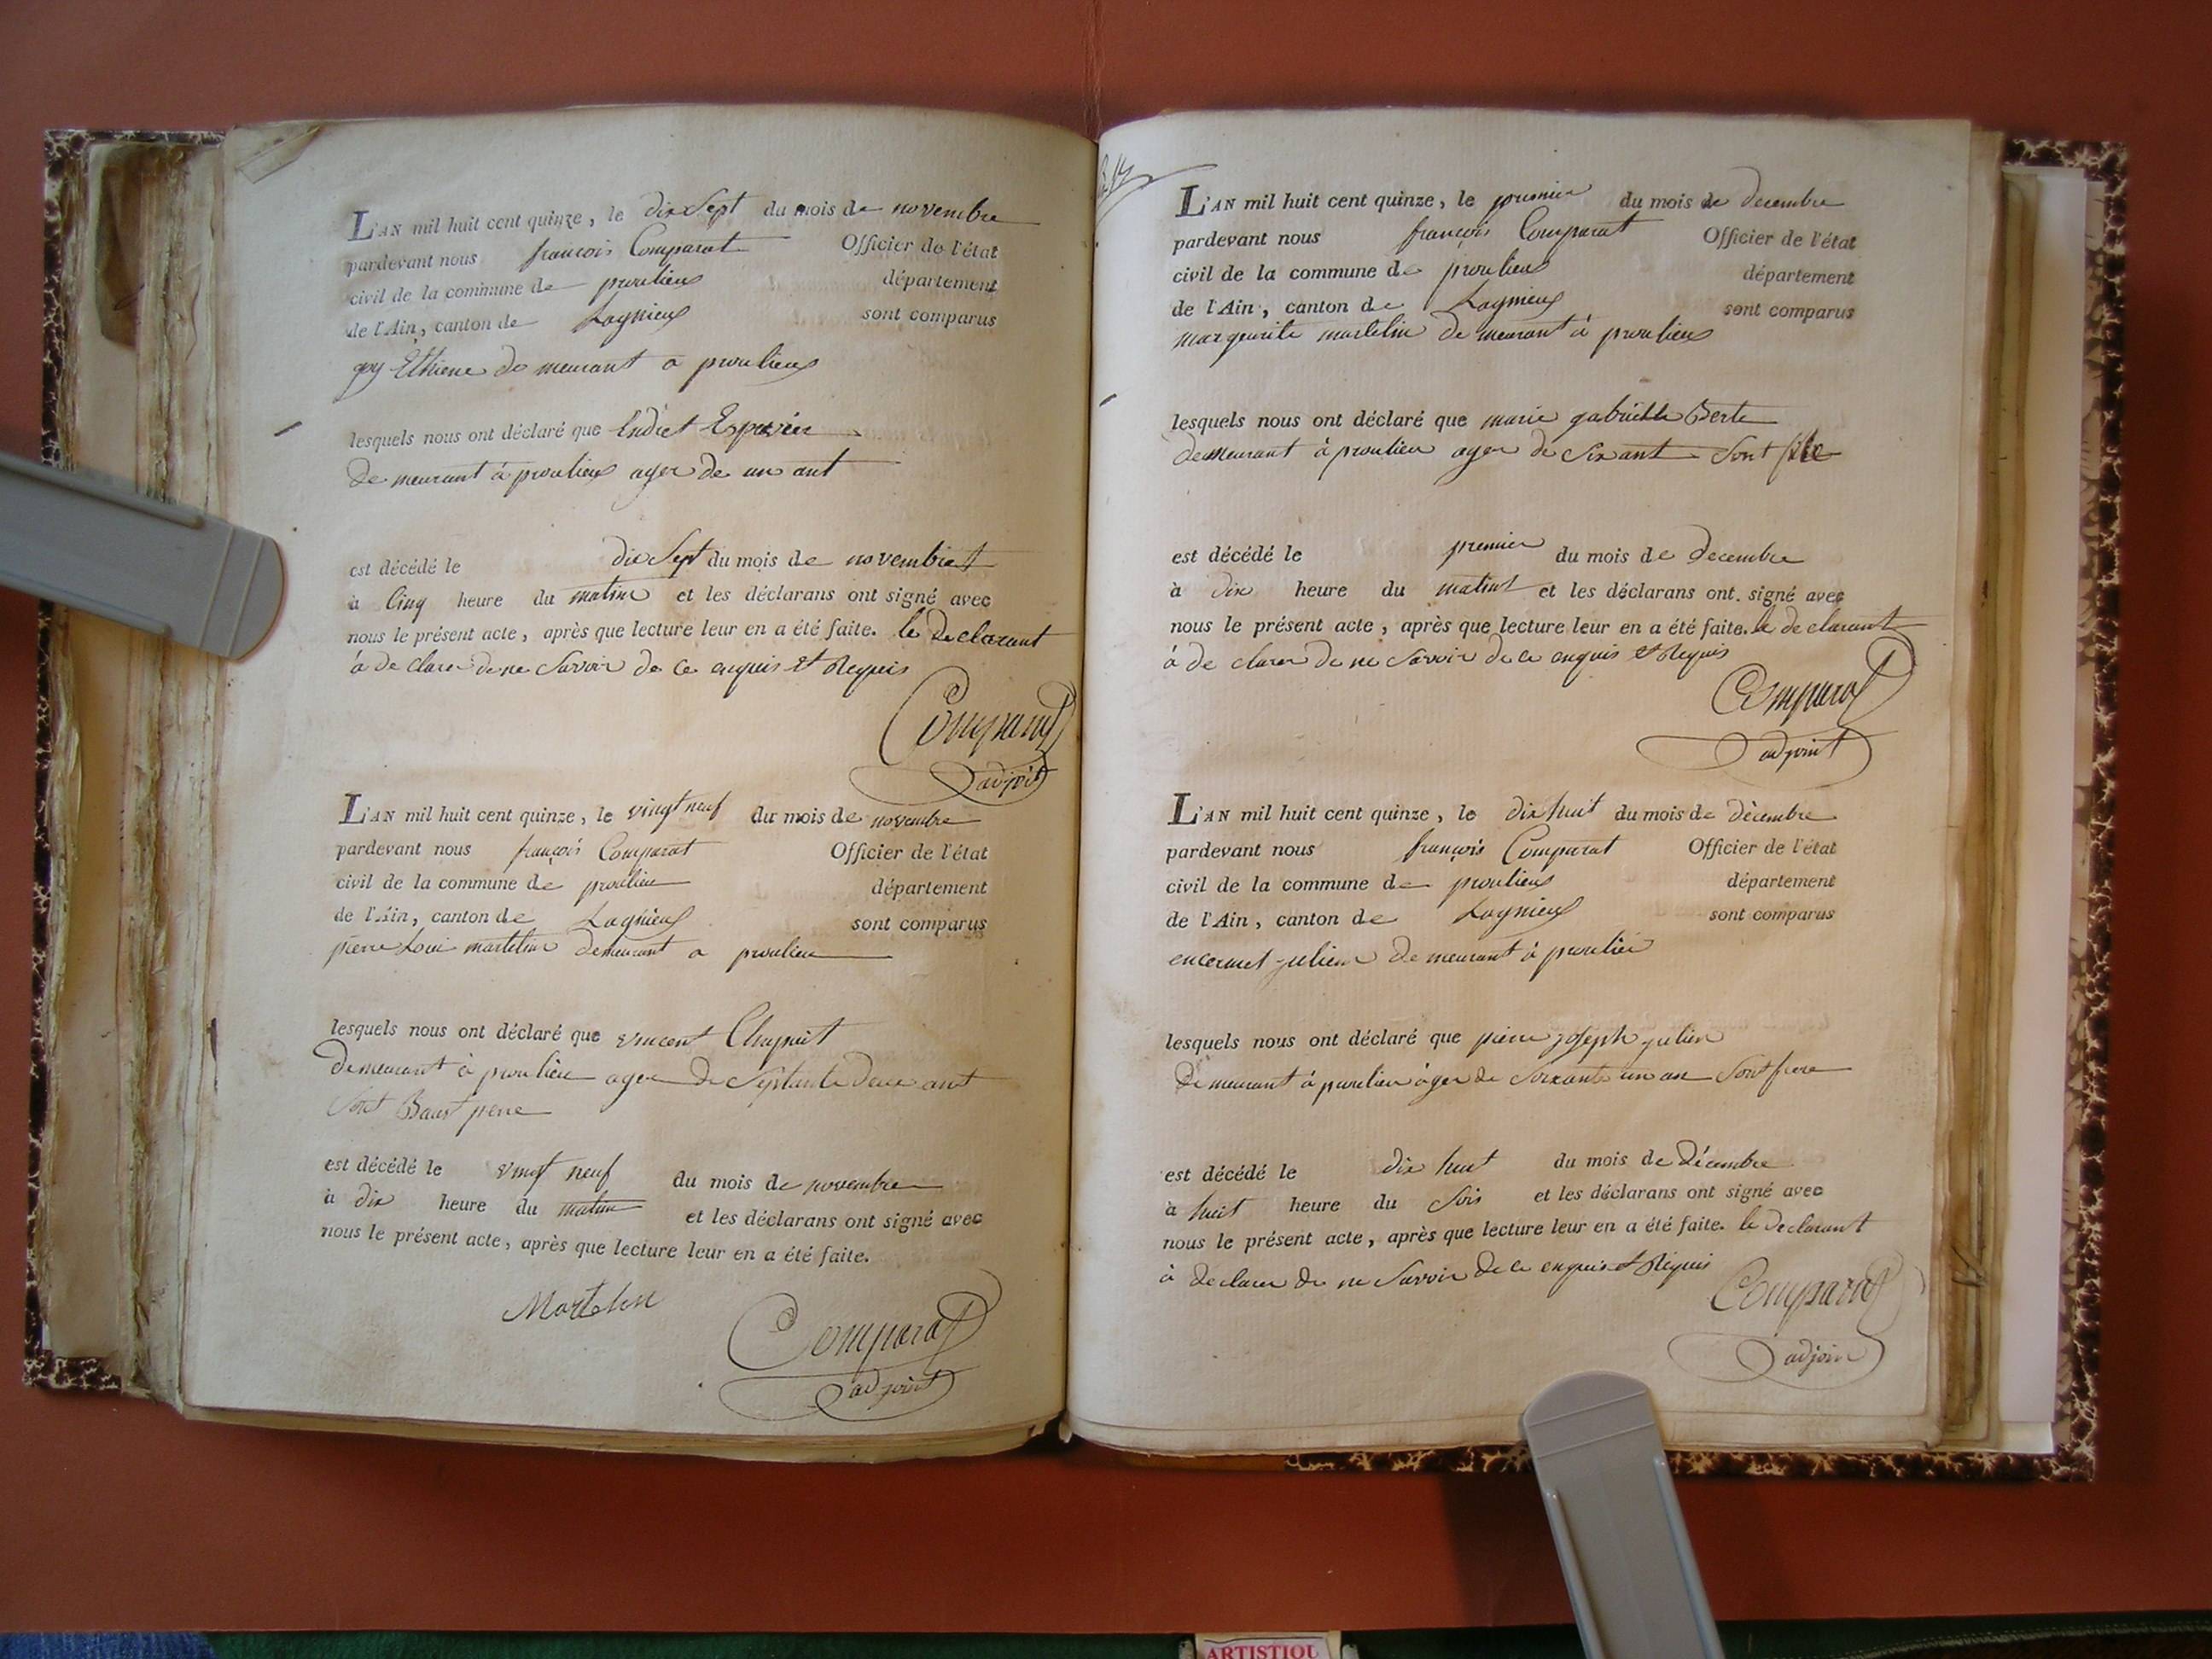 L'AN mil huit cent quinze, le dix Sept du mois de novembre
pardevant nous françois Comparat Officier de l'état
civil de la commune de proulieux département
de l'Ain, canton de Lagnieux sont comparus
goy Ethiene de meurant a proulieux
lesquels nous ont déclaré que
de meurant à proulieux ager de un ant
est décédé le dix Sept du mois de novembre
à Cinq heure du matin et les déclarans ont signé avec
nous le présent acte, après que lecture leur en a été faite. le declarant
à de clarer de ne Savoir de ce enquis et Requis
Comparat
adjoint
L'AN mil huit cent quinze, le vingt neuf du mois de novembre
pardevant nous françois Comparat Officier de l'état
civil de la commune de proulieu département
de l'Ain, canton de Lagnieux sont comparus
pierre Loui martelin demeurant a proulieu
lesquels nous ont déclaré que vincent Chapuit
Demeurant à proulieu ager de Septante Deux ant
Sont Baust pere
est décédé le vingt neuf du mois de novembre
à dix heure du matin et les déclarans ont signé avec
nous le présent acte, après que lecture leur en a été faite.
Martelin
Comparat
adjoint
L'AN mil huit cent quinze, le premier du mois de decembre
pardevant nous françois Comparat Officier de l'état
civil de la commune de proulieux département
de l'Ain, canton de Lagnieux sont comparus
marguerite martelin de meurant à proulieux
lesquels nous ont déclaré que marie gabrielle Berte
demeurant à proulieu ager de Six ant Sont fille
est décédé le premier du mois de Decembre
à Dix heure du matint et les déclarans ont signé avec
nous le présent acte, après que lecture leur en a été faite. le de clarant
à de clarer de ne Savoir de ce enquis et Requis
Comparat
adjoint
L'AN mil huit cent quinze, le dix huit du mois de décembre
pardevant nous françois Comparat Officier de l'état
civil de la commune de proulieux département
de l'Ain, canton de Lagnieux sont comparus
julien de meurant à proulieu
lesquels nous ont déclaré que pierre joseph julien
De meurant à proulieu àger de Soixante un an Sont frere
est décédé le dix huit du mois de Décembre
à huit heure du Soir et les déclarans ont signé avec
nous le présent acte, après que lecture leur en a été faite. le declarant
à declarer de ne Savoir de ce enquis et Requis
Comparat
adjoin
ARTISTIQU